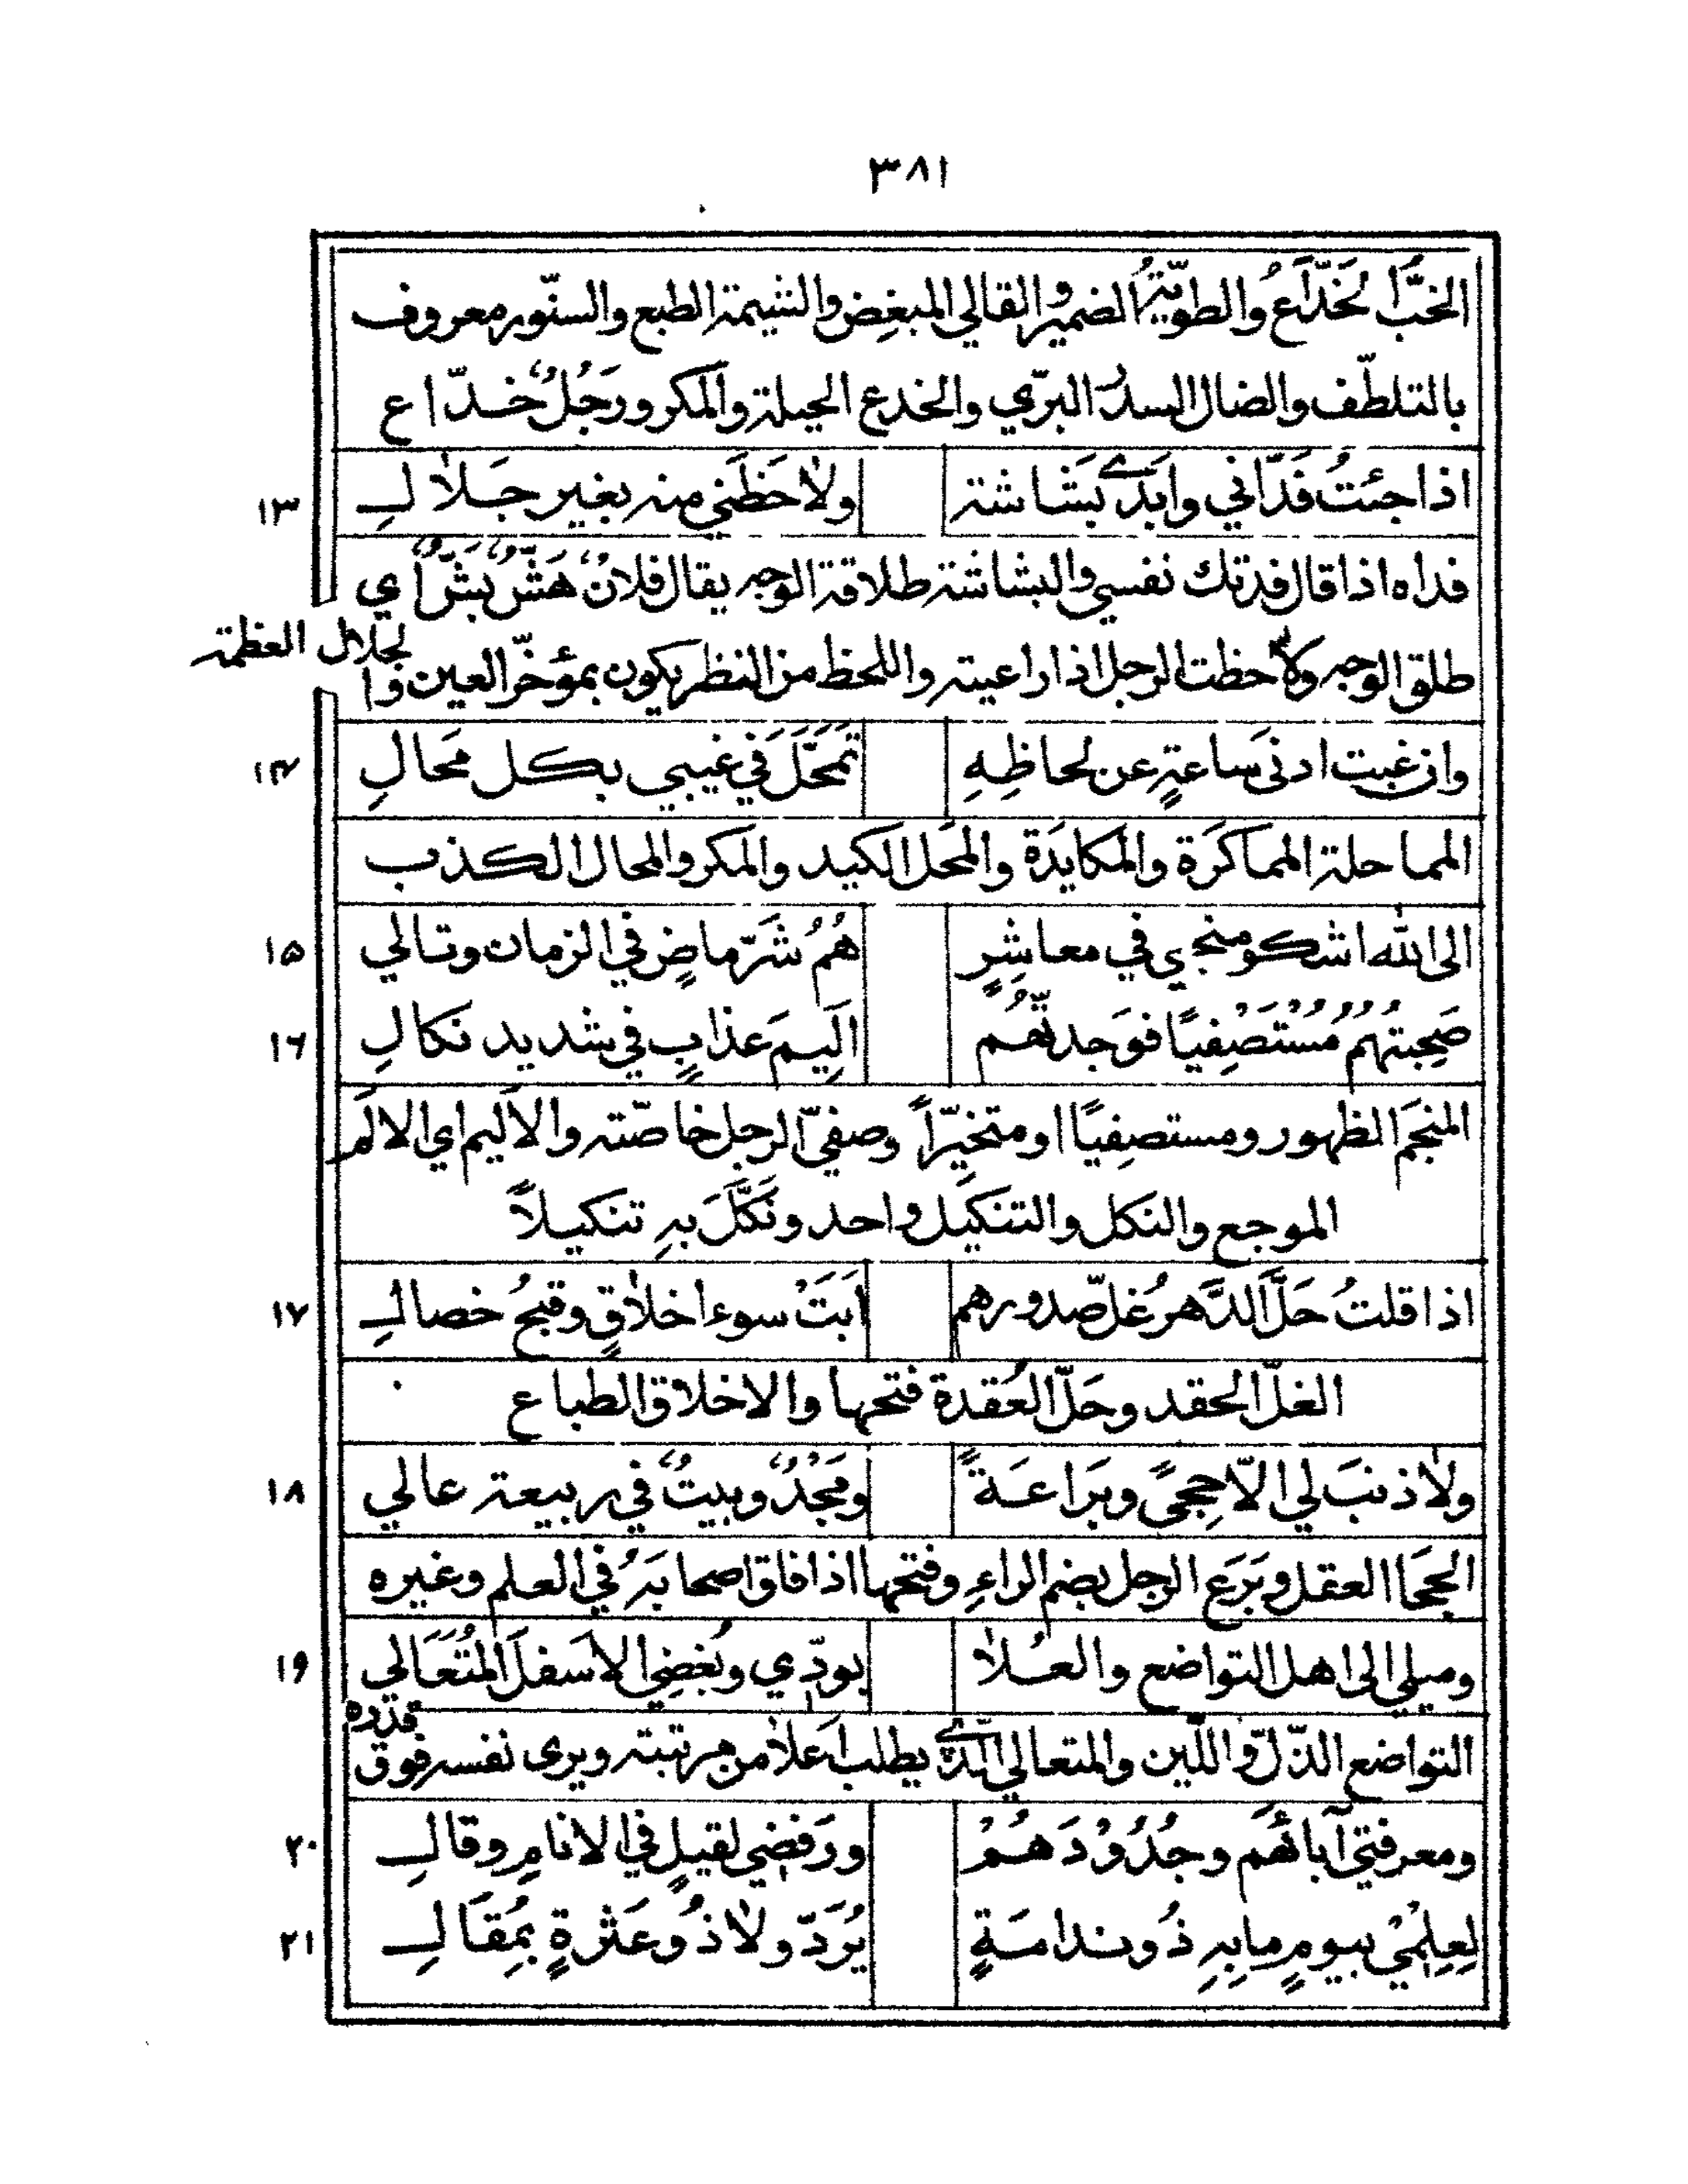 ٣٨١
الخبُّ الخَدّاعُ والطويّةُ الضمير والقالي المبغِض والشيمة الطبع والسنّور معروف
بالتلطّف والضال السدر البرّي والخدع الحيلة والمكر ورَجُلٌ خَدّاع
اذا جئتُ فَدّاني وابَدى بَشاشة ولاٰحَظَني منه بغير جَلاٰلِ ١٣
فداه اذا قال فدتك نفسي والبشاشة طلاقة الوجه يقال فلانٌ هَشٌّ بَشٌّ أي
طلق الوجه ولاٰحظت الرجل اذا راعيته واللحظ من النظر يكون بمؤخّر العين وا
لجلال العظمة
وان غبت ادنى سَاعةٍ عن لحاظِهِ تَمَحَّلَ في غيبي بكل مَحالِ ١٤
المماحلة المماكَرة والمكايَدَة والمَحَل الكيد والمكر والمحال الكذب
الى الله اشكو منجمي في معاشِرٍ هُمُ شَرّ ماضٍ في الزمان وتالي ١٥
صَحِبتُهُمُ مُسْتَصْفِيًا فوَجدتُّهُم اَلِيمَ عذابٍ في شديد نكالِ ١٦
المنجَم الظهور ومستصفِيًا او متخيِّراً وصفيّ الرجل خاصّته والاَليم اي الالَم
الموجع والنكل والتنكيل واحد ونَكَّلَ بهِ تنكيلاً
اذا قلتُ حَلَّ الدَّهرُ غلّ صدورهم اَبَتْ سوء اخلاٰقٍ وقبحُ خصالِ ١٧
الغلّ الحقد وحَلّ العُقدة فتحها والاخلاق الطباع
ولاٰ ذنبَ لي الّا حِجىً وبَرَاعَةً ومَجْدٌ وبيتٌ في ربيعة عالي ١٨
الحِجَا العقل وبَرَع الرجل بضم الراءِ وفتحها اذا فاق اصحابَهُ في العلم وغيره
وميلي الى اهل التواضع والعُلاٰ بودّي وبُغضِي الاَسفلَ المُتَعَالي ١٩
التواضع الذّلّ واللّين والمتعالي الّذي يطلب اَعلاٰ من مرتبته ويرى نفسه فوق
قدره
ومعرفتي آبائَهُم وجُدُوْدَهُمْ ورَفضِي لقيلٍ في الانامِ وقالِ ٢٠
لِعِلمِيْ بيومٍ ما بِهِ ذُو ندامَةٍ يُرَدّ ولاٰ ذُو عَثرةٍ بِمُقَالِ ٢١